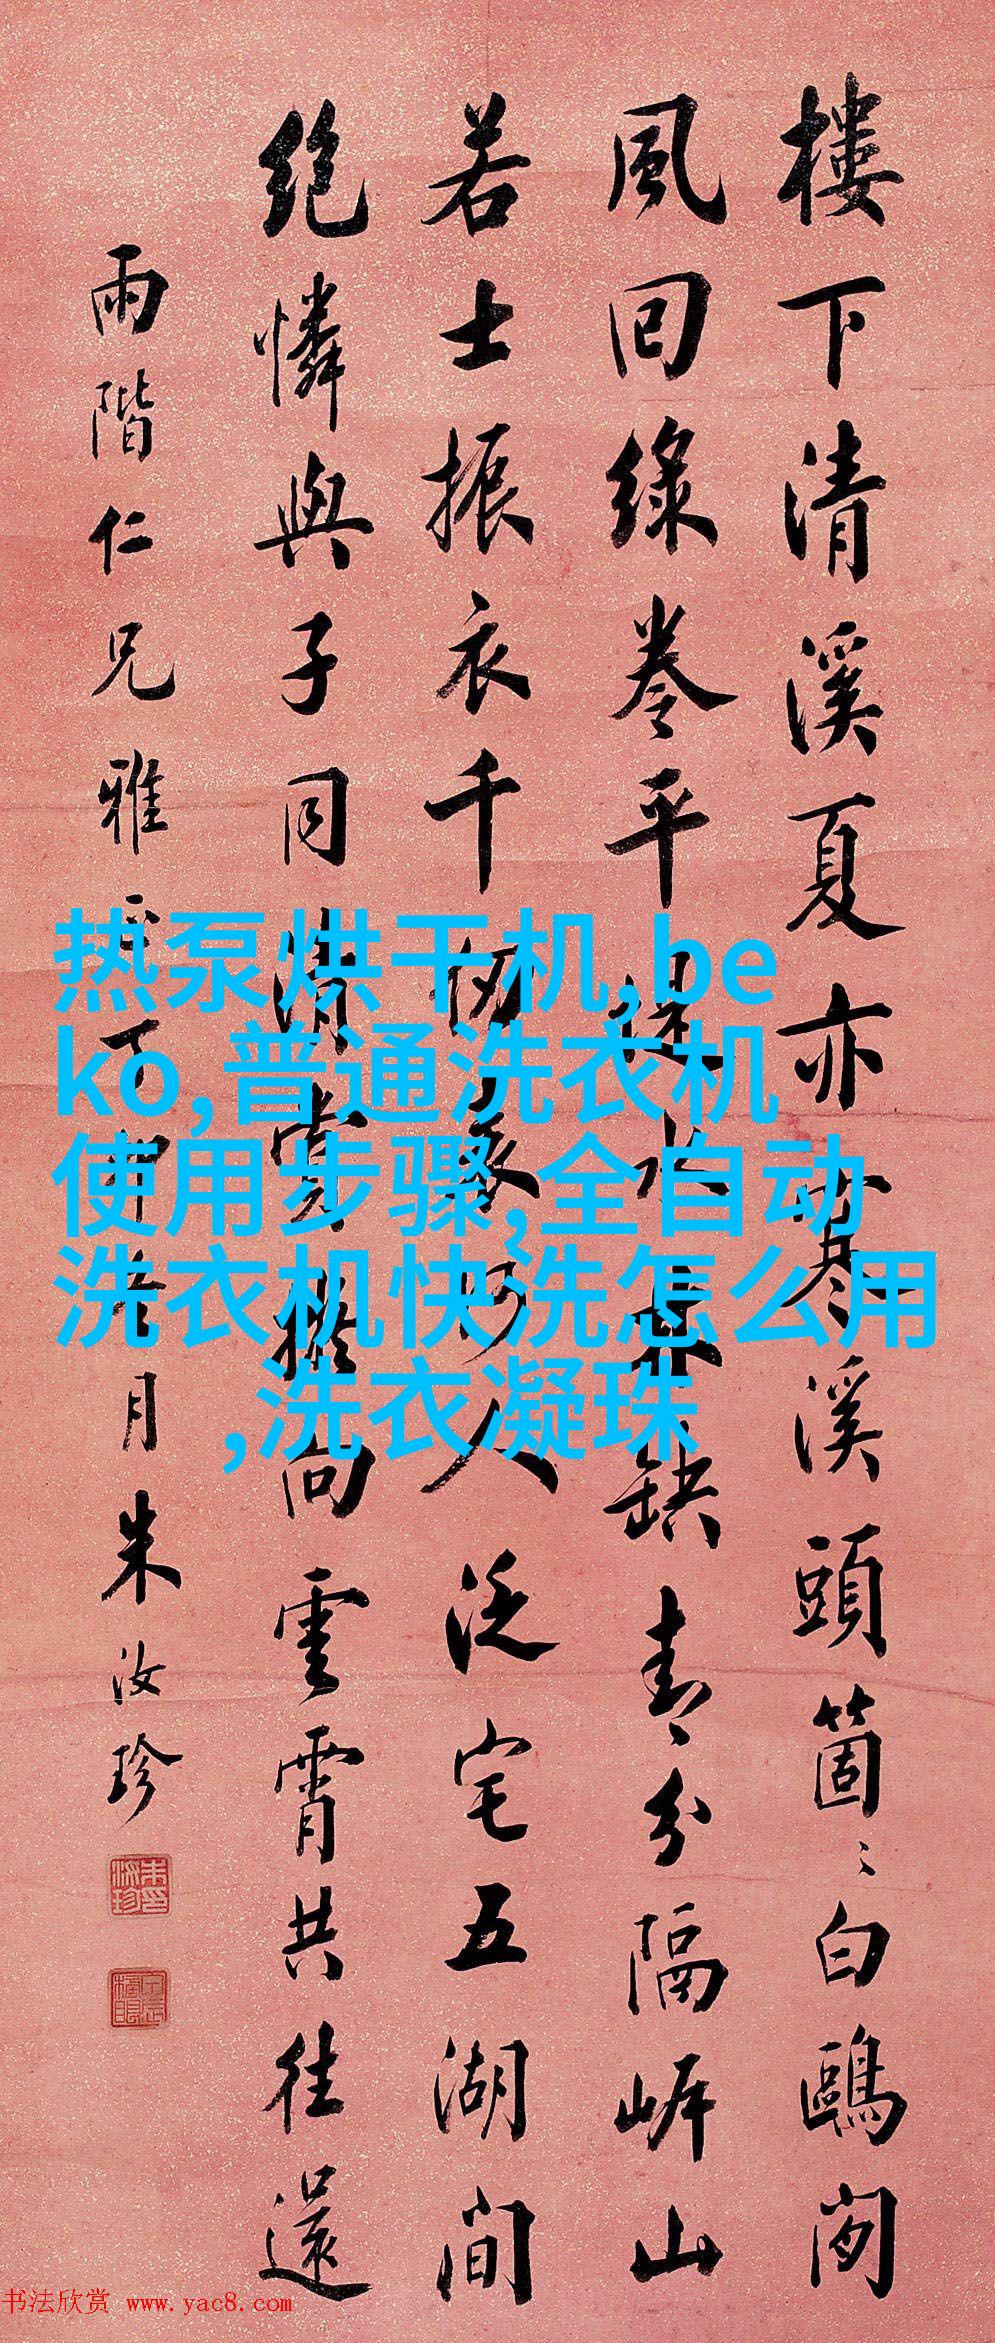 樓下清溪夏亦寒溪頭箇〻白鷗閒
風回綠卷平堤水 缺青〻分隔岸山
若士振衣千仞 人泛宅五湖間
絶憐與子同情 向雲霄共往還
雨階仁兄雅 月朱汝珍
热泵烘干机,be
ko,普通洗衣机
使用步骤,全自动
洗衣机快洗怎么用
,洗衣凝珠
书法欣赏 www.yac8.com